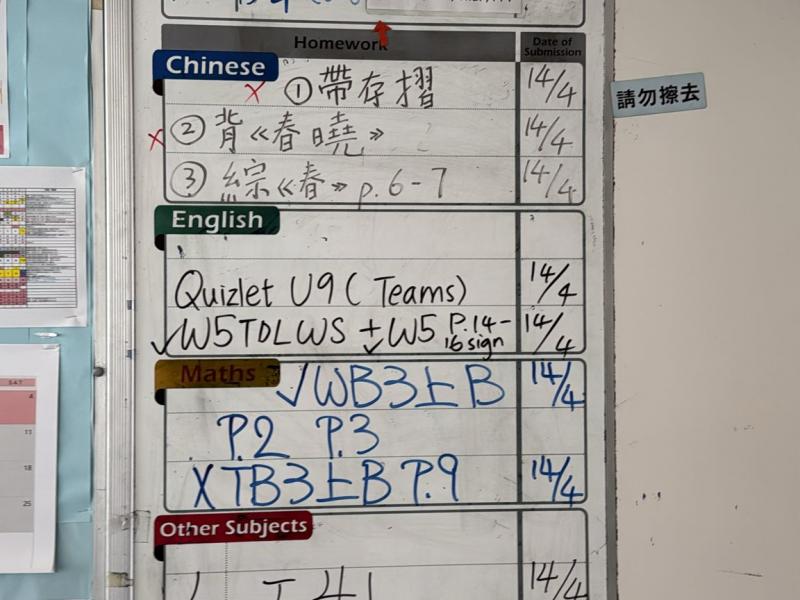 Homework
Date of Submission
Chinese
X ①帶存摺 14/4
X ②背《春曉》 14/4
③綜《春》p.6-7 14/4
請勿擦去
English
Quizlet U9 (Teams) 14/4
✓W5TDLWS +✓W5 P.14-16 sign 14/4
Maths
✓WB3上B 14/4
P.2 P.3
X TB3上B P.9 14/4
Other Subjects
14/4